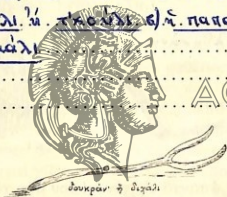 λι ἤ τσκούλι β) ἤ παπο
άλι
ΑΘ
δουκράν' ἤ διχάλι